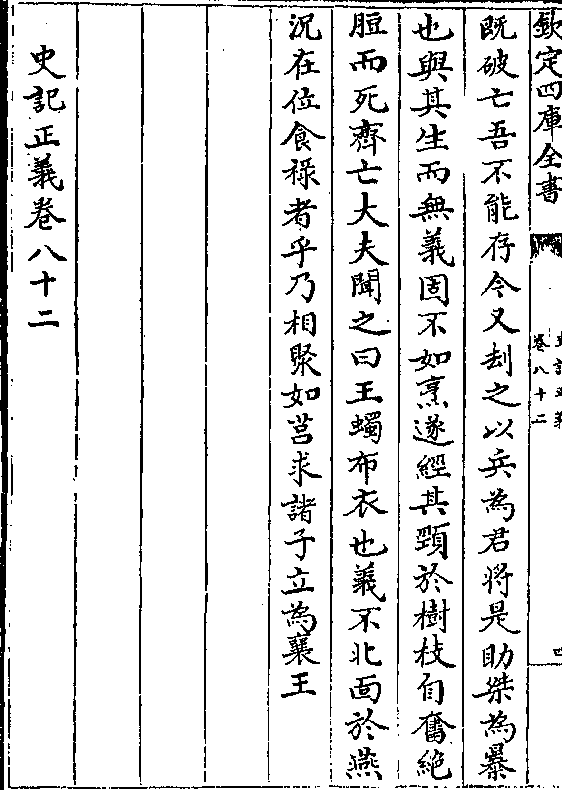 欽定四庫全書
卷八十二
既破亡吾不能存今又刦之以兵為君將是助桀為暴
也與其生而無義固不如烹遂經其頸於樹枝自奮絶
脰而死齊亡大夫聞之曰王蠋布衣也義不北面於燕
況在位食祿者乎乃相聚如莒求諸子立為襄王
史記正義卷八十二